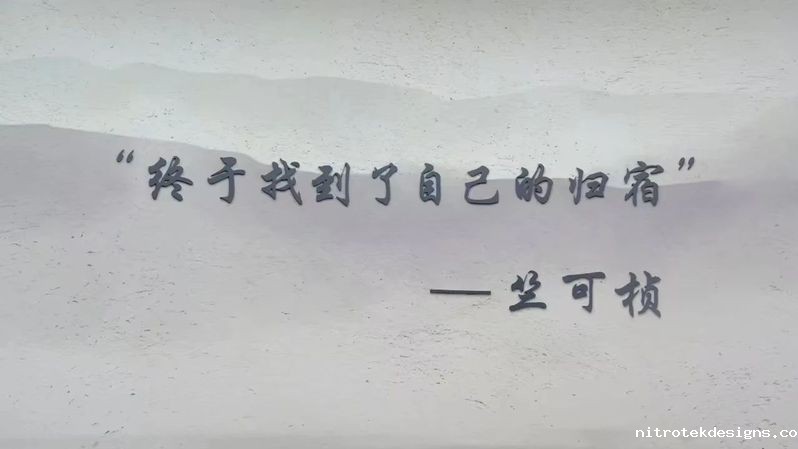 “终于找到了自己的归宿”
——竺可桢
nitrotekdesigns.co